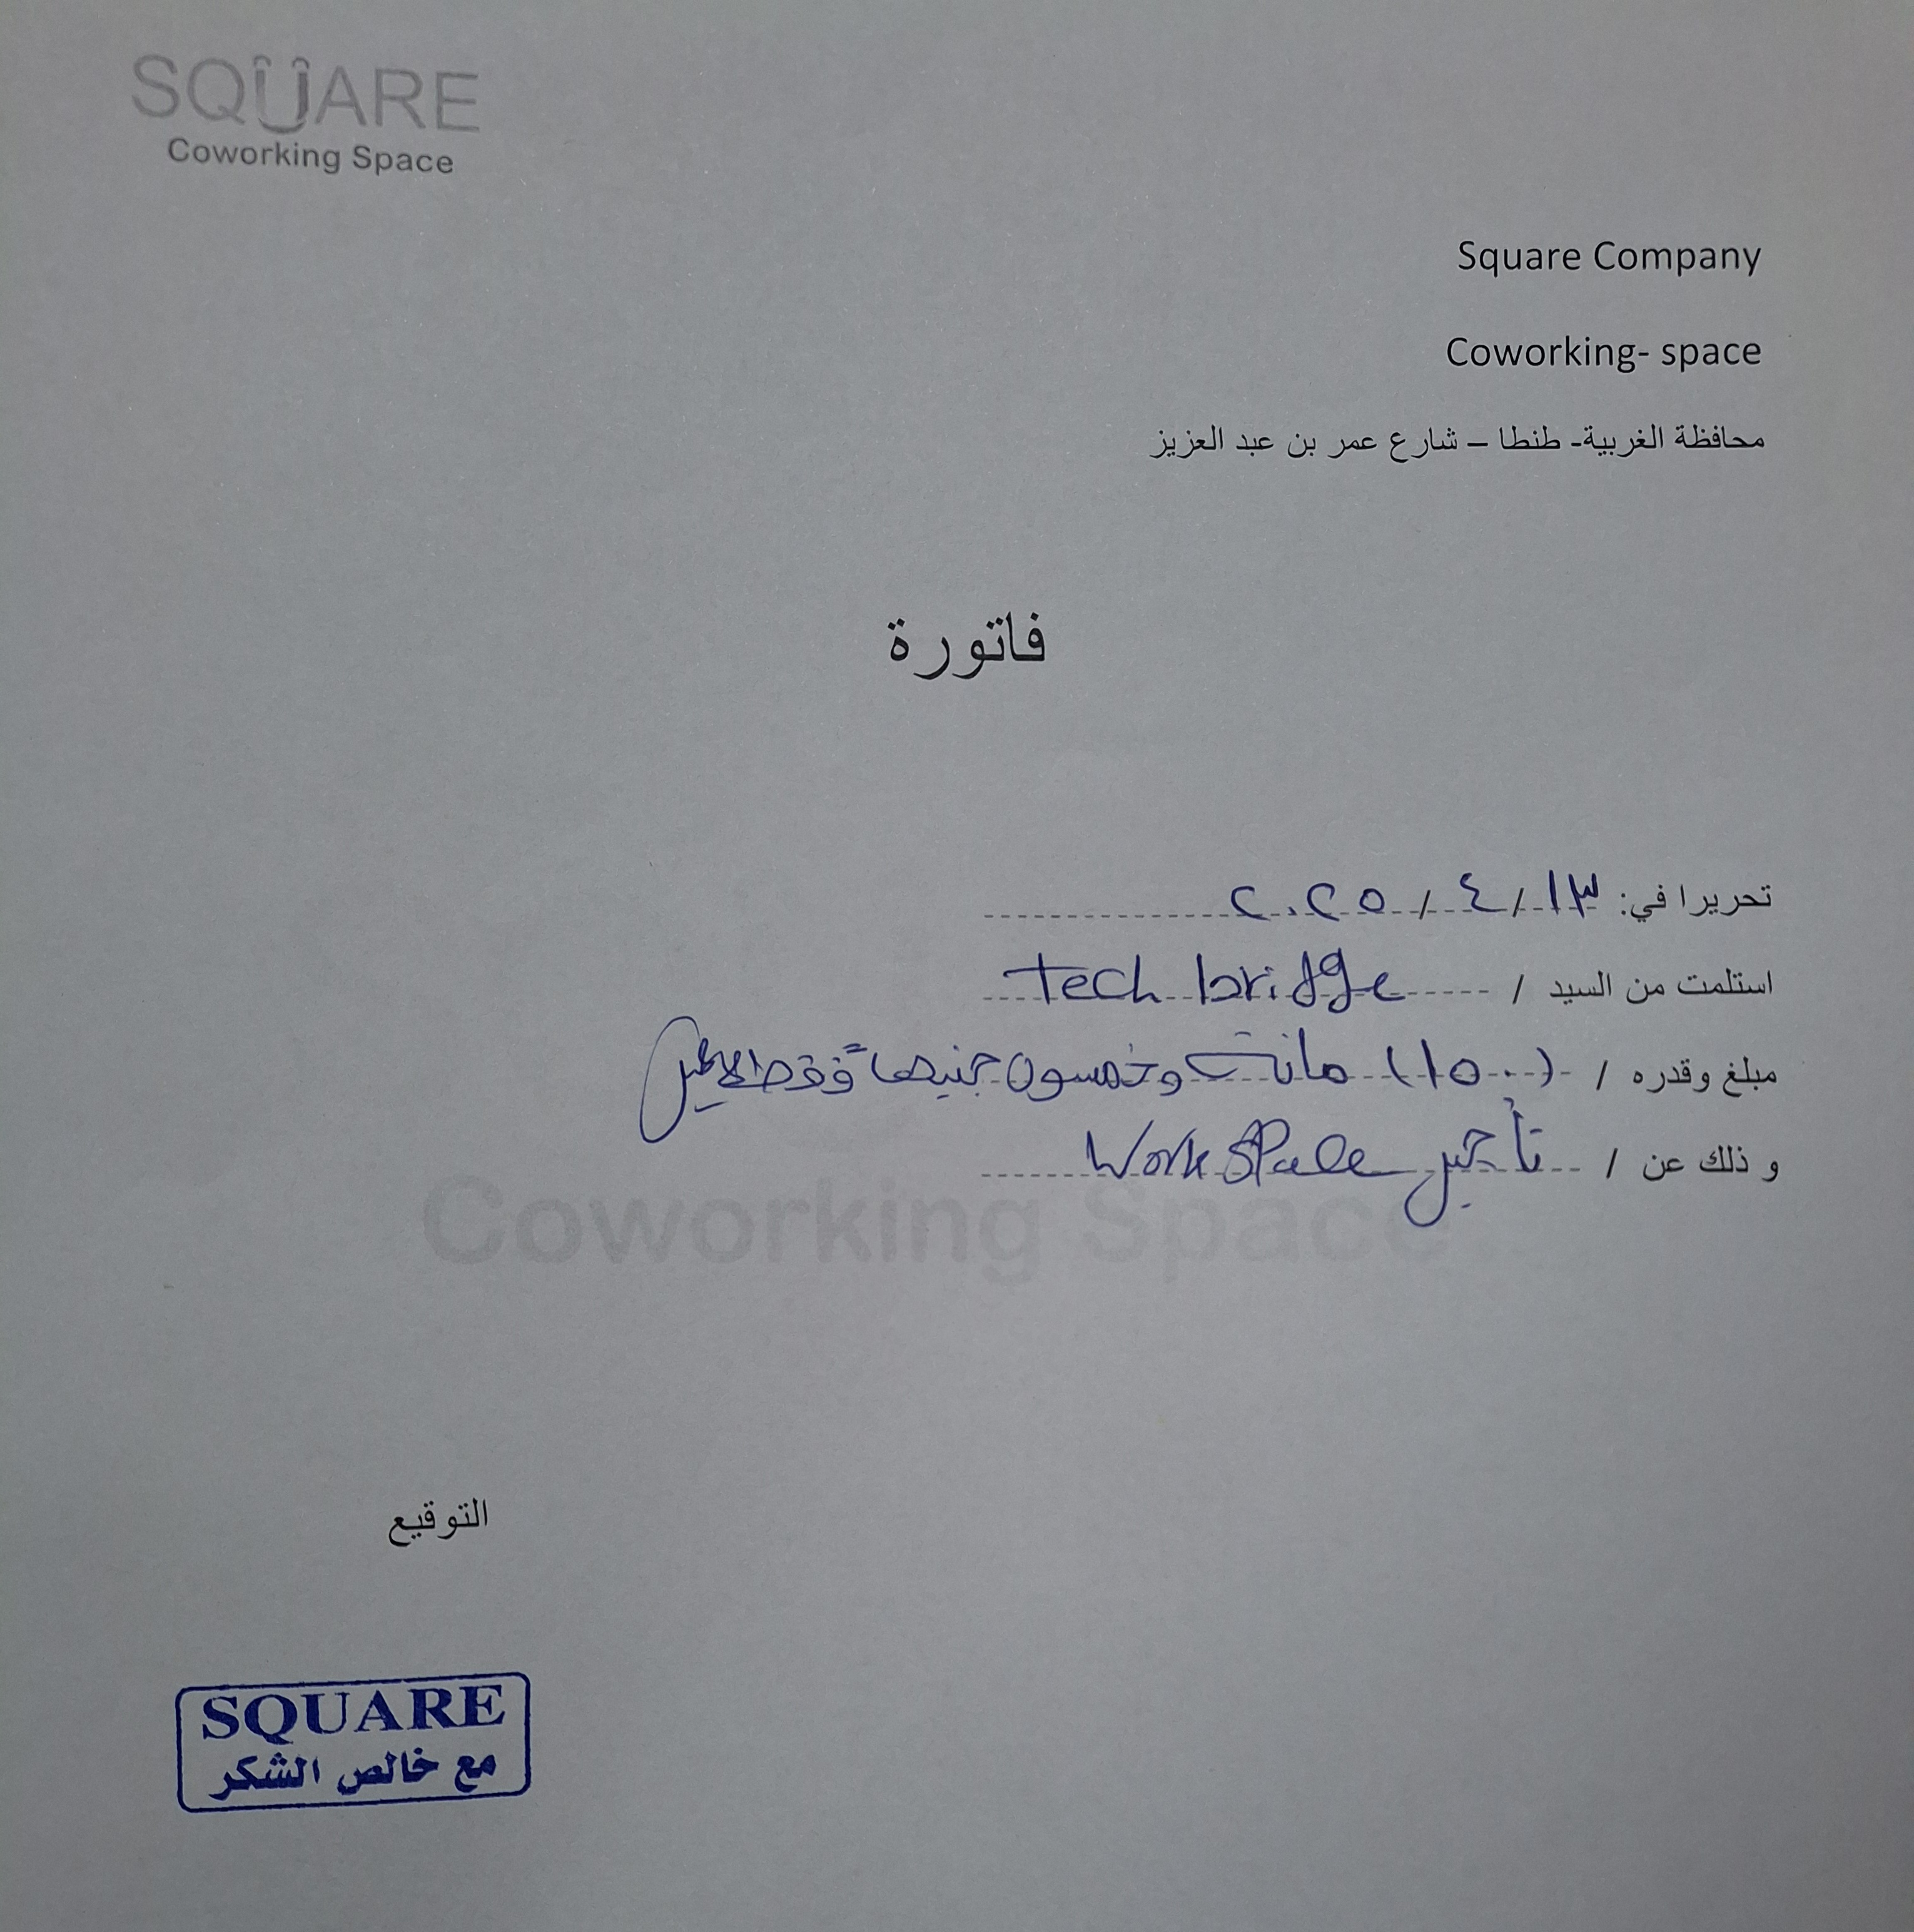 SQUARE
Coworking Space
Square Company
Coworking- space
محافظة الغربية- طنطا – شارع عمر بن عبد العزيز
فاتورة
تحريرا في: ١٣ / ٤ / ٢٠٢٥
استلمت من السيد / Tech bridge
مبلغ وقدره / (١٥٠٠) مائت وخمسون جنيهاً فقط لاغير
و ذلك عن / تأجير Work SPace
Coworking Space
التوقيع
SQUARE
مع خالص الشكر